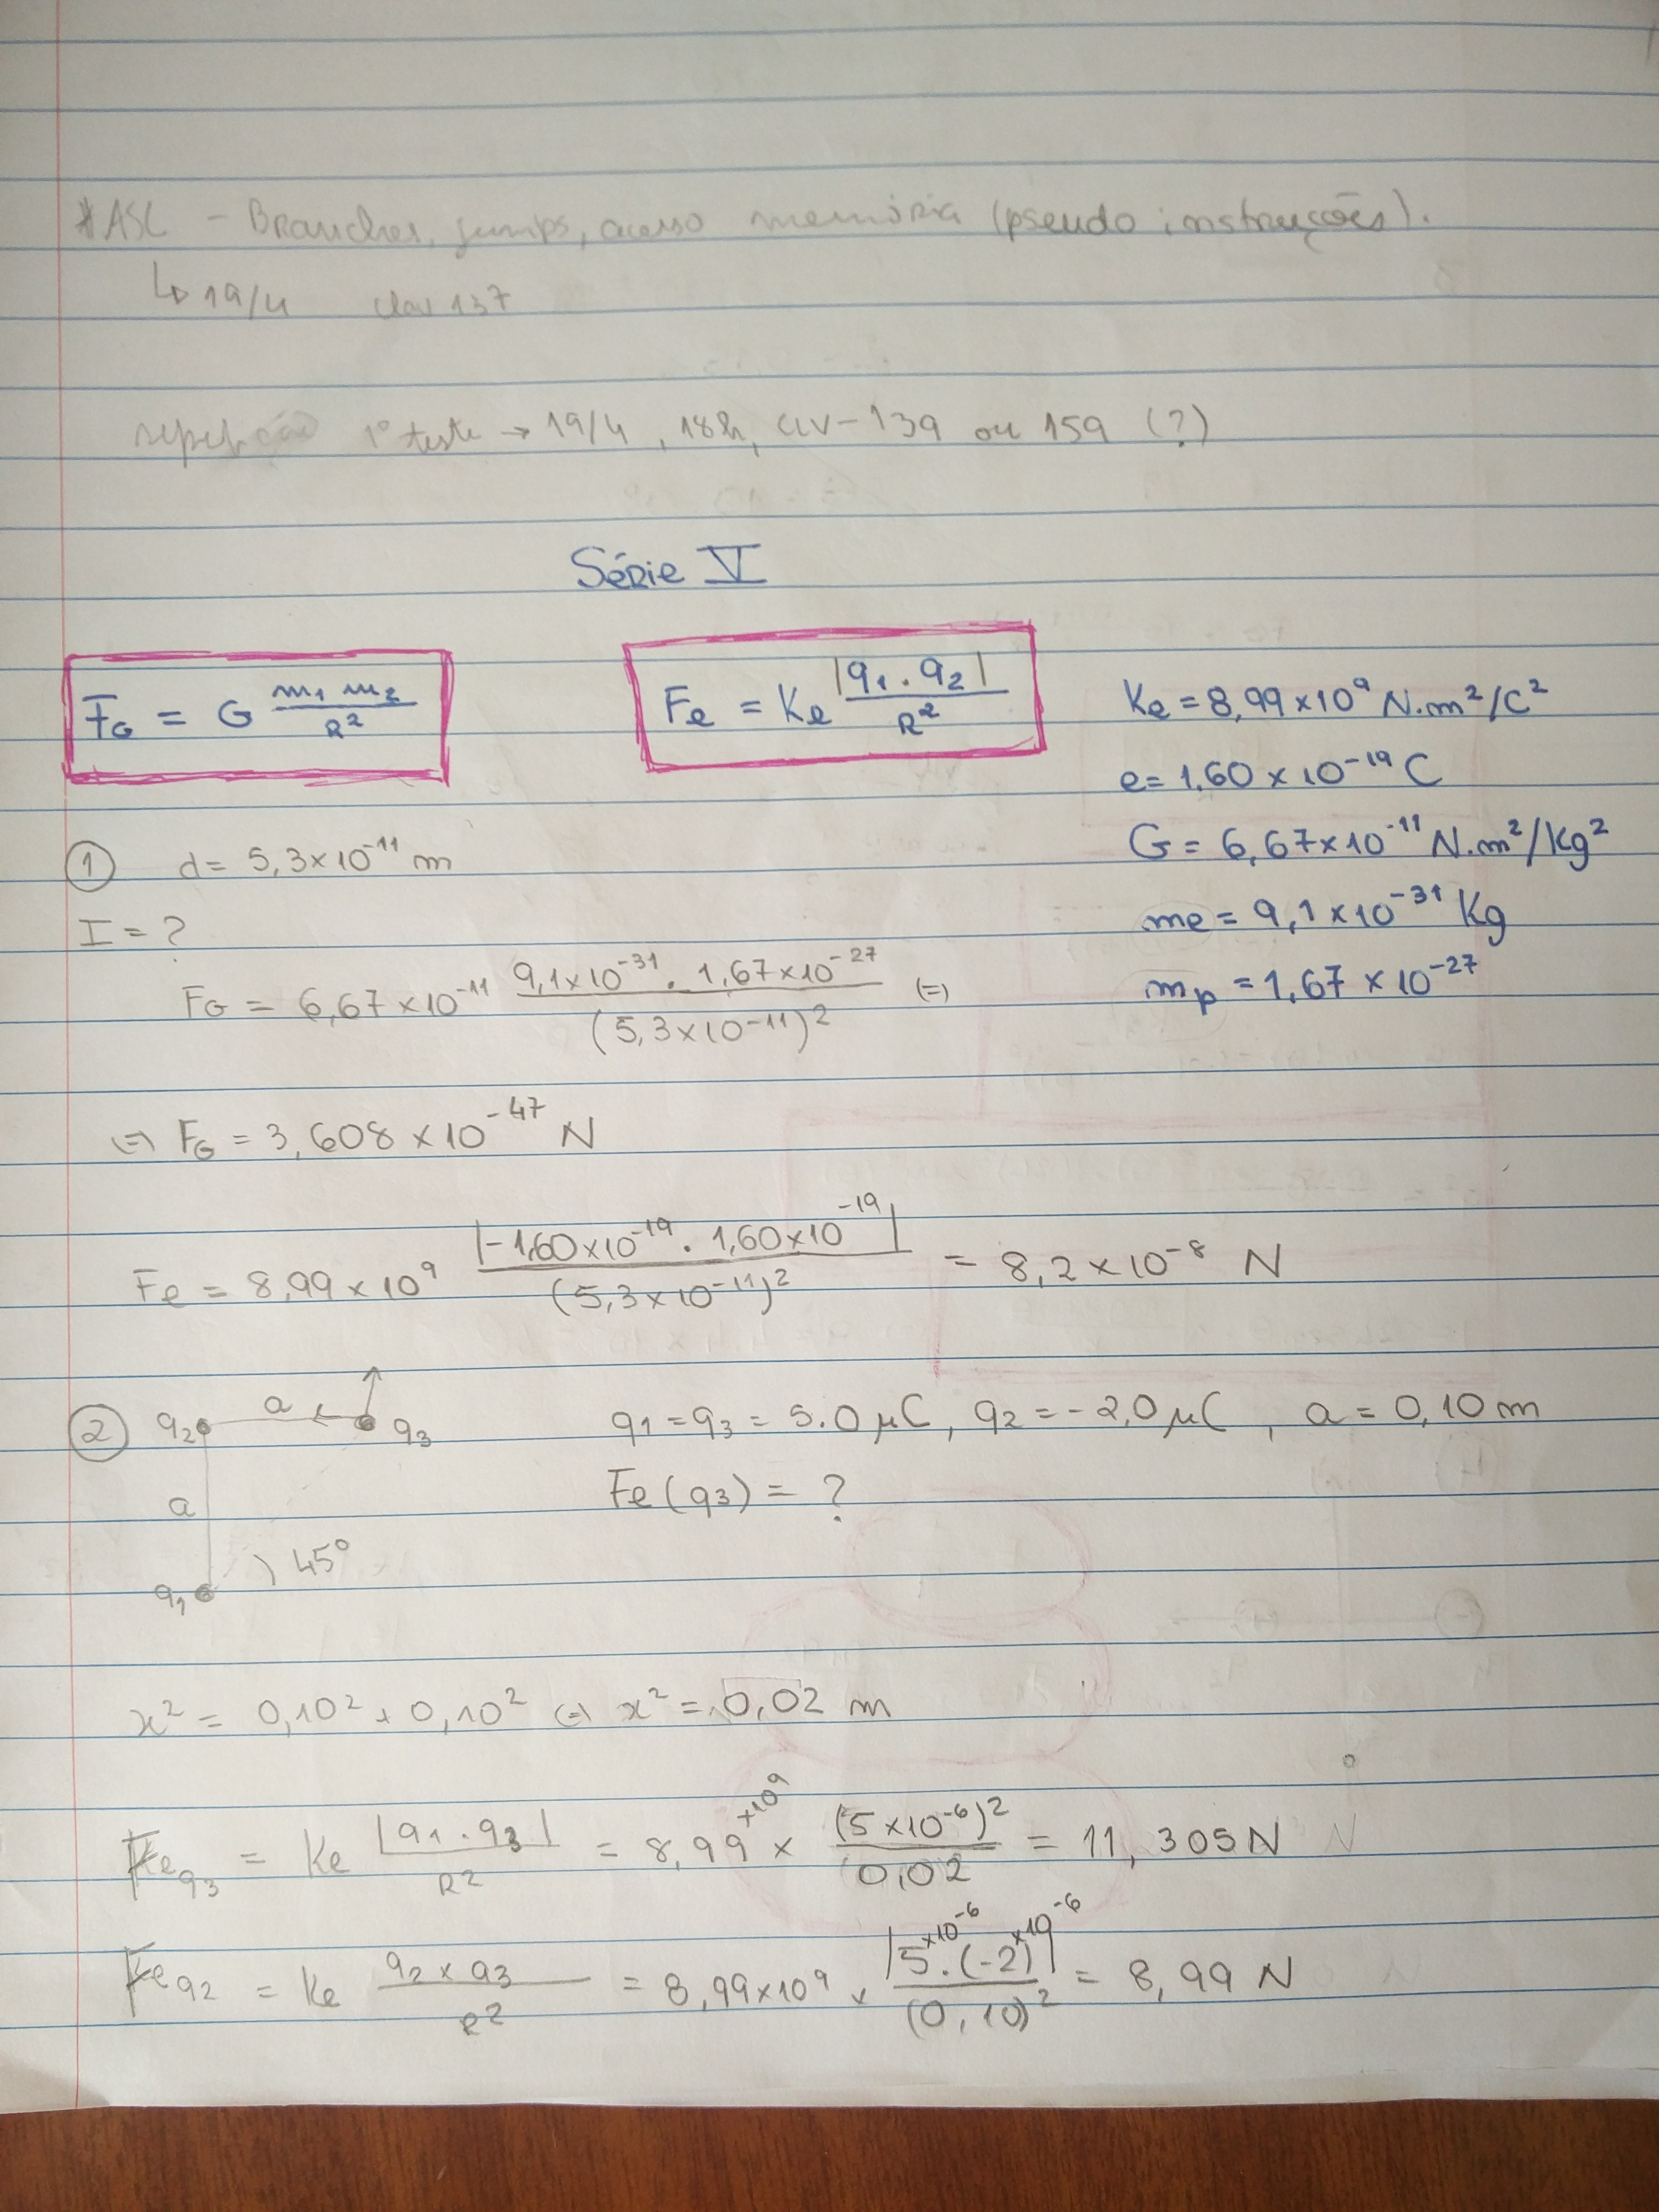 *ASC - Branches, jumps, acesso memória (pseudo instruções).
↳ 19/4 clav 137
repetição 1º teste → 19/4, 18h, CLV-139 ou 159 (?)
Série V
FG = G m1 m2 / R²
Fe = Ke |q1 . q2| / R²
Ke = 8,99 x 10⁹ N.m²/C²
e = 1,60 x 10⁻¹⁹ C
G = 6,67 x 10⁻¹¹ N.m²/Kg²
me = 9,1 x 10⁻³¹ Kg
mp = 1,67 x 10⁻²⁷
① d = 5,3 x 10⁻¹¹ m
I = ?
FG = 6,67 x 10⁻¹¹ 9,1 x 10⁻³¹ . 1,67 x 10⁻²⁷ / (5,3 x 10⁻¹¹)² (=)
(=) FG = 3,608 x 10⁻⁴⁷ N
Fe = 8,99 x 10⁹ |-1,60 x 10⁻¹⁹ . 1,60 x 10⁻¹⁹| / (5,3 x 10⁻¹¹)² = 8,2 x 10⁻⁸ N
② q2 a q3
q1 = q3 = 5.0 μC, q2 = -2,0 μC, a = 0,10 m
Fe (q3) = ?
a
45°
q1
x² = 0,10² + 0,10² (=) x² = 0,02 m
Feq3 = Ke |q1 . q3| / R² = 8,99 x10⁹ x (5 x 10⁻⁶)² / 0,02 = 11,305 N N
Feq2 = Ke q2 x q3 / R² = 8,99 x 10⁹ x |5 x10⁻⁶ . (-2) x10⁻⁶| / (0,10)² = 8,99 N